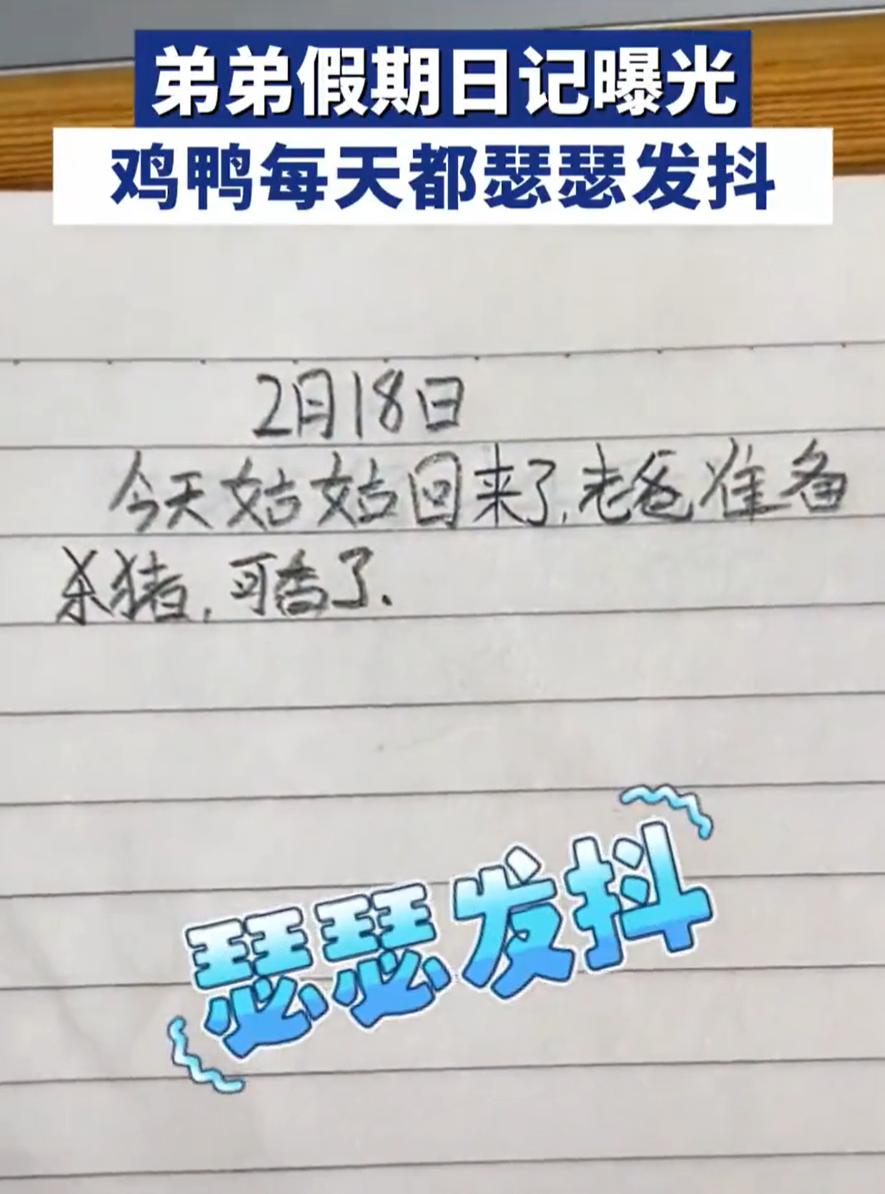 弟弟假期日记曝光
鸡鸭每天都瑟瑟发抖
2月18日
今天姑姑回来了,老爸准备
杀猪,可香了.
瑟瑟发抖